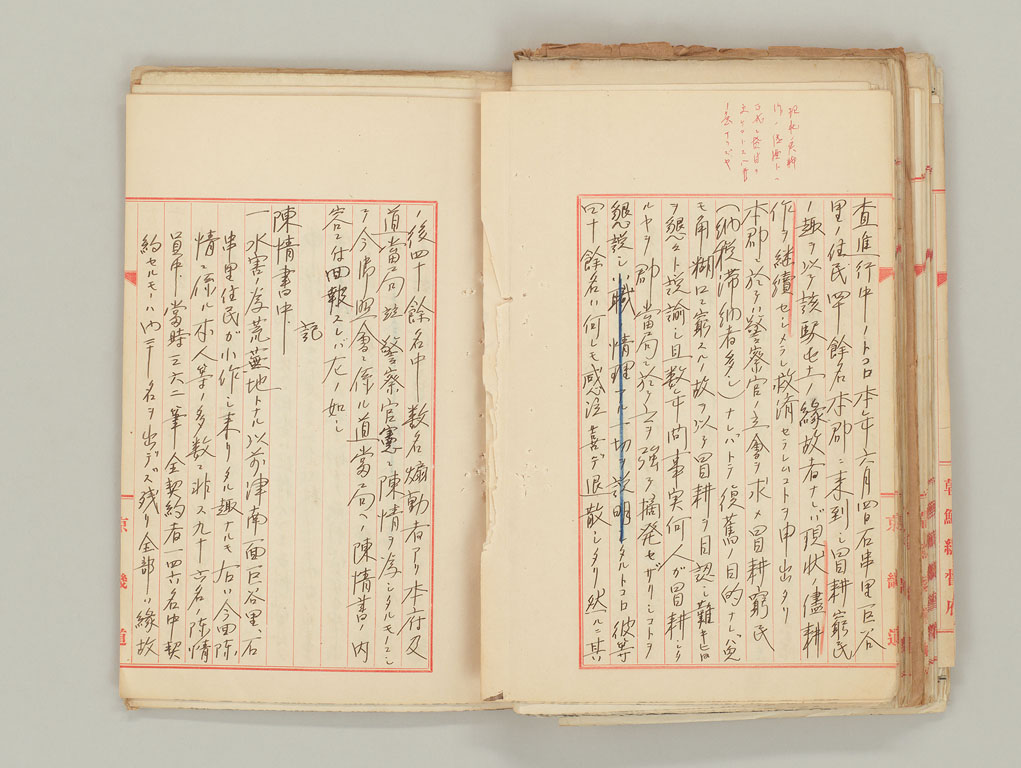 査進行中ノトコロ本年六月四日石串里巨谷
里ノ住民四十余名本郡ニ来到シ冒耕窮民
ノ趣ヲ以テ該駅屯土ノ縁故者ナレバ現状ノ儘耕
作ヲ継續セシメラレ救済セラレムコトヲ申出タリ
本郡ニ於テハ警察官ノ立會ヲ求メ冒耕窮民
(納税滞納者多シ)ナレバトテ復舊ノ目的ナレバ
モ角糊口ニ窮スルノ故ヲ以テ冒耕ヲ目認シ難キ旨
ヲ懇々ト説諭シ且数年間事実何人ガ冒耕シタ
ルヤヲ郡當局ニ於テ之ヲ強テ摘発セザリシコトヲ
懇説シ職情理ニ一切ヲ説明シタルトコロ彼等
四十餘名ハ何レモ感泣喜デ退散シタリタル然ルニ其
ノ後四十餘名中数名煽動者アリ本府及
道當局並警察官憲ニ陳情ヲ為シタルモノニシ
テ今御照會ニ係ル道當局ヘノ陳情書ノ内
容ニ付回報スレバ左ノ如シ
記
陳情書中
一水害ノ為荒蕪地トナル以前津南面巨谷里、石
串里住民ガ小作シ来リタル趣ナルモ右ハ今回陳
情ニ係ル本人等ノ多数ニ非ス九十六名ノ陳情
員中當時三六二筆全契約者一四六名中契
約セルモノハ内名ヲ出デズ残リ全部ハ縁故
京畿道
京畿道
朝鮮総督府